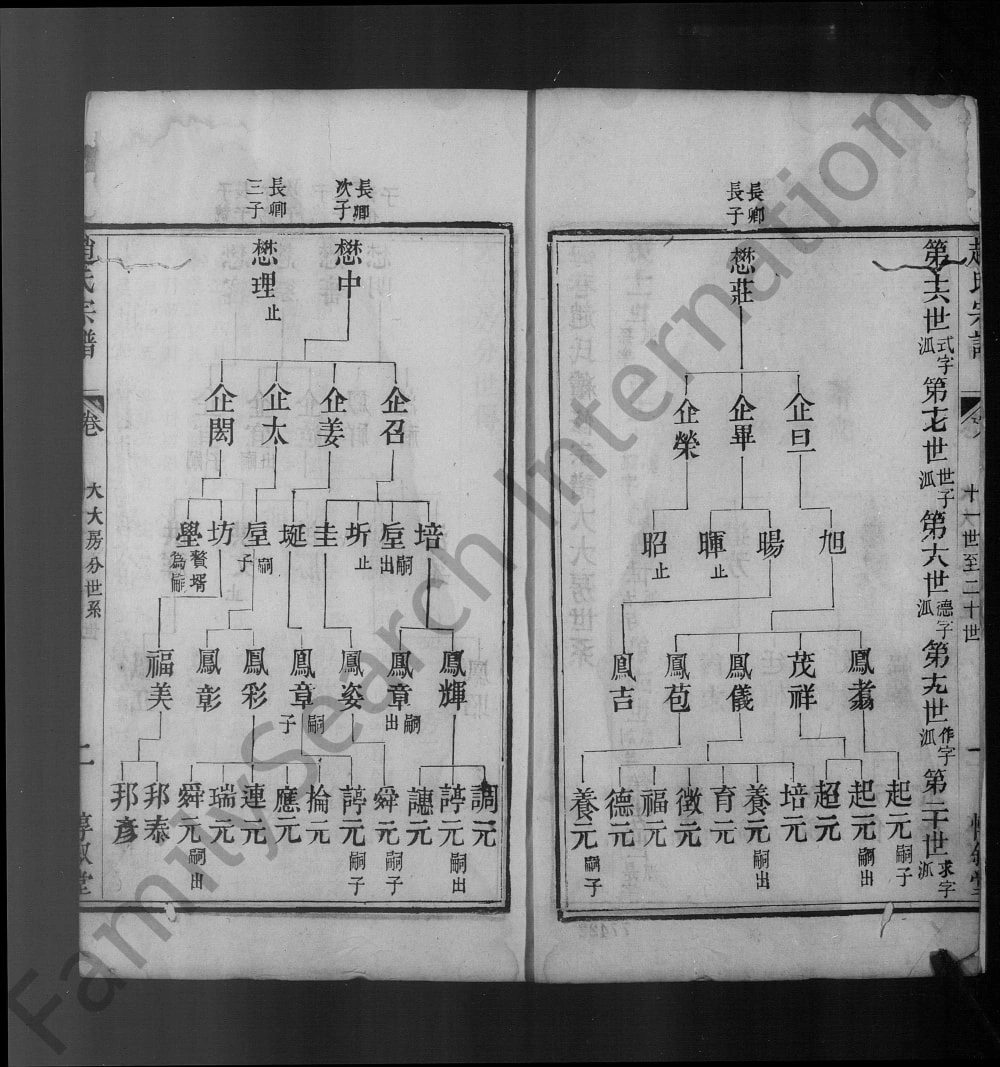 趙氏宗譜
卷
十一世至二十世
一
惇敘堂
第十六世
式字派
第十七世
世字派
第十八世
德字派
第十九世
作字派
第二十世
求字派
長卿長子
懋莊
企旦
企畢
企榮
旭
暘
暉 止
昭 止
鳳翥
茂祥
鳳儀
鳳苞
鳳吉
起元 嗣子
起元 嗣出
超元
培元
養元 嗣出
育元
徵元
福元
德元
養元 嗣子
長卿次子
懋中
長卿三子
懋理 止
企召
企姜
企太
企閎
培
垕 嗣出
圻 止
圭
埏
垕 嗣子
坊
壆 贅壻為嗣
鳳輝
鳳章 嗣出
鳳姿
鳳章 嗣子
鳳彩
鳳彰
福美
調元
諄元 嗣出
譓元
舜元 嗣子
諄元 嗣子
掄元
應元
連元
瑞元
舜元 嗣出
邦泰
邦彥
趙氏宗譜
卷
大大房分世系
二
惇敘堂
FamilySearch International